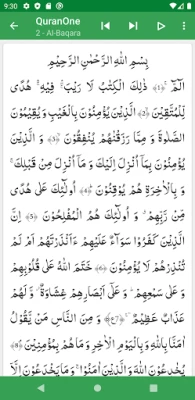 9:30
QuranOne
2 - Al-Baqara
بِسْمِ اللّٰهِ الرَّحْمٰنِ الرَّحِيْمِ
الٓمّٓ ﴿1﴾ ذٰلِكَ الْكِتٰبُ لَا رَيْبَ ۛ فِيْهِ ۛ هُدًى
لِّلْمُتَّقِيْنَ ﴿2﴾ الَّذِيْنَ يُؤْمِنُوْنَ بِالْغَيْبِ وَ يُقِيْمُوْنَ
الصَّلٰوةَ وَ مِمَّا رَزَقْنٰهُمْ يُنْفِقُوْنَ ﴿3﴾ وَ الَّذِيْنَ
يُؤْمِنُوْنَ بِمَاۤ اُنْزِلَ اِلَيْكَ وَ مَاۤ اُنْزِلَ مِنْ قَبْلِكَ ۚ
وَ بِالْاٰخِرَةِ هُمْ يُوْقِنُوْنَ ﴿4﴾ اُولٰٓئِكَ عَلٰى هُدًى
مِّنْ رَّبِّهِمْ ۗ وَ اُولٰٓئِكَ هُمُ الْمُفْلِحُوْنَ ﴿5﴾ اِنَّ
الَّذِيْنَ كَفَرُوْا سَوَآءٌ عَلَيْهِمْ ءَاَنْذَرْتَهُمْ اَمْ لَمْ
تُنْذِرْهُمْ لَا يُؤْمِنُوْنَ ﴿6﴾ خَتَمَ اللّٰهُ عَلٰى قُلُوْبِهِمْ
وَ عَلٰى سَمْعِهِمْ ۗ وَ عَلٰۤى اَبْصَارِهِمْ غِشَاوَةٌ ۫ وَّ لَهُمْ
عَذَابٌ عَظِيْمٌ ﴿7﴾ وَ مِنَ النَّاسِ مَنْ يَّقُوْلُ
اٰمَنَّا بِاللّٰهِ وَ بِالْيَوْمِ الْاٰخِرِ وَ مَا هُمْ بِمُؤْمِنِيْنَ ﴿8﴾
يُخٰدِعُوْنَ اللّٰهَ وَ الَّذِيْنَ اٰمَنُوْا ۚ وَ مَا يَخْدَعُوْنَ اِلَّاۤ